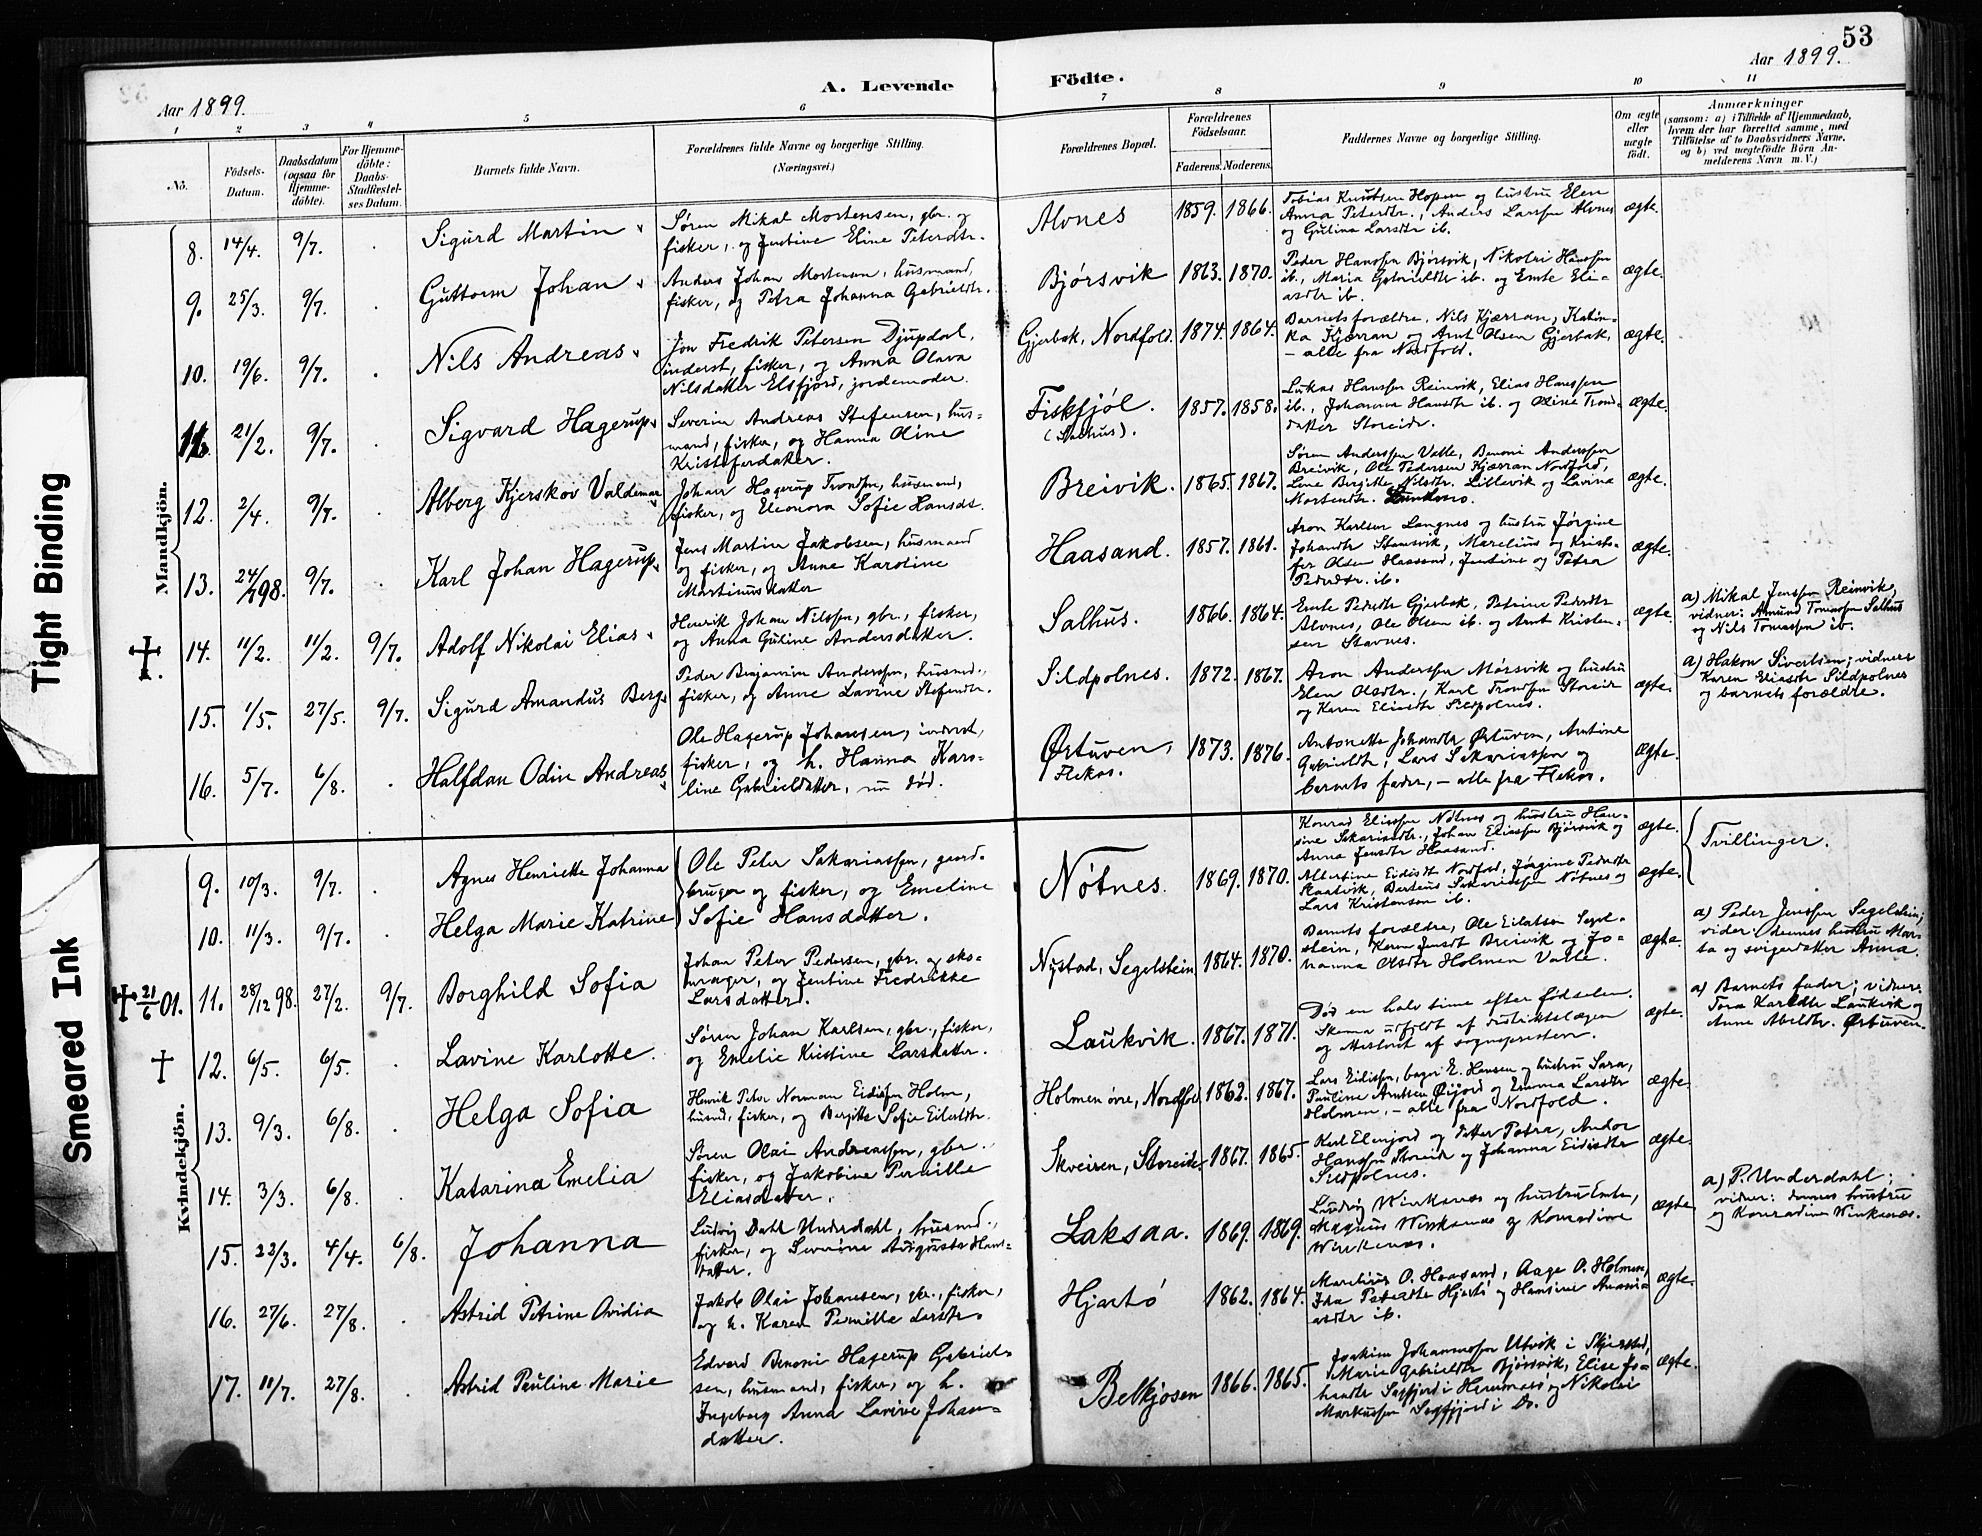 53
Aar 1899.
A. Levende
Födte.
Aar 1899.
1 2 3 4 5 6 7 8 9 10 11
No.
Födsels-Datum.
Daabsdatum (ogsaa for Hjemme-döbte).
For Hjemme-döbte: Daabs-Stadfæstel-ses Datum.
Barnets fulde Navn.
Forældrenes fulde Navne og borgerlige Stilling.
(Næringsvei.)
Forældrenes Bopæl.
Forældrenes Födselsaar.
Faderens. Moderens.
Faddernes Navne og borgerlige Stilling.
Om ægte eller uægte födt.
Anmærkninger
(saasom: a) i Tilfælde af Hjemmedaab,
hvem der har forrettet samme, med
Tilföielse af to Daabsvidners Navne,
og b) ved uægtefödte Börn An-
melderens Navn m. V.)
Mandkjön.
8. 14/4. 9/7. Sigurd Martin
Søren Mikal Mortensen, gbr. og
fisker, og Jentine Eline Petersdtr.
Alvnes 1859. 1866.
Tobias Knutsen Hopen og hustru Elen
Anna Petersdtr., Anders Larssen Alvnes
og Gutina Larsdtr ib.
ægte.
9. 25/3. 9/7. Guttorm Johan
Anders Johan Mortensen, husmand,
fisker, og Petra Johanna Gabrielsdtr.
Bjørsvik 1863. 1870.
Peder Hanssen Bjørsvik, Nikolai Hanssen
ib., Maria Gabrielsdtr ib. og Emte Eli-
asdtr ib.
ægte.
10. 19/6. 9/7. Nils Andreas
Jon Fredrik Petersen Djupdal,
inderst, fisker, og Anna Olava
Nilsdatter Elsfjord, jordemoder.
Gjerbak, Nordfold. 1874. 1864.
Barnets forældre, Nils Kjærran, Katin-
ka Kjærran og Arnt Olsen Gjerbak,
- alle fra Nordfold.
ægte.
11. 21/2. 9/7. Sigvard Hagerup
Severin Andreas Stefensen, hus-
mand, fisker, og Hanna Oline
Kristofersdatter.
Fiskfjøl. (Salhus). 1857. 1858.
Lukas Hanssen Reinvik, Elias Hanssen
ib., Johanna Hansdtr ib. og Oline Trond-
datter Storeidr.
ægte.
12. 2/4. 9/7. Alberg Kjerskov Valdemar
Johan Hagerup Trondsen, husmand,
fisker, og Eleonora Sofie Hansdt.
Breivik. 1865. 1867.
Søren Anderssen Valle, Benoni Anderssen
Breivik, Ole Pedersen Kjærran Nordfold,
Lene Birgitte Nilsdtr. Lillevik og Lavina
Mortensdtr.
ægte.
13. 24/7 98. 9/7. Karl Johan Hagerup
Jens Martin Jakobsen, husmand
og fisker, og Anne Karoline
Martinusdatter
Haasand. 1857. 1861.
Aron Karlsen Langnes og hustru Jørgine
Johansdtr Stensvik, Marelius og Kristo-
fer Olsen Haasand, Jentine og Petra
Pedersdtr. ib.
ægte.
14. 11/2. 11/2. 9/7. Adolf Nikolai Elias
Henrik Johan Nilssen, gbr., fisker,
og Anna Gutine Andersdatter.
Salhus. 1866. 1864.
Emte Pedersdtr Gjerbak, Petrine Pedersdtr
Alvnes, Ole Olsen ib. og Arnt Kristen-
sen Stavnes.
ægte.
a) Mikal Jenssen Reinvik;
vidner: Amund Tomassen Salhus
og Nils Tomassen ib.
15. 1/5. 27/5. 9/7. Sigurd Amandus Berg
Peder Benjamin Anderssen, husmd.,
fisker, og Anne Lavine Stefensdtr.
Sildpolnes. 1872. 1867.
Aron Anderssen Mørsvik og hustru
Elen Olsdtr., Karl Trondsen Storeidr
og Karen Eliasdtr Sildpolnes.
ægte.
a) Hakon Sivertsen; vidner:
Karen Eliasdtr Sildpolnes
og barnets forældre.
16. 5/7. 6/8. Halfdan Odin Andreas
Ole Hagerup Johansen, inderst,
fisker, og h. Hanna Karo-
line Gabrielsdatter, nu død.
Ørtuven, Flekos. 1873. 1876.
Antonette Johansdtr Ørtuven, Arntine
Gabrielsdtr, Lars Sakariassen og
barnets fader, - alle fra Flekos.
ægte.
Kvindekjön.
9. 10/3. 9/7. Agnes Henriette Johanna
10. 11/3. 9/7. Helga Marie Katrine
Ole Peter Sakariassen, gaard-
bruger og fisker, og Emeline
Sofie Hansdatter.
Nøtnes. 1869. 1870.
Konrad Eliassen Nøtnes og hustru Han-
sine Sakariasdtr., Johan Eliassen Bjørsvik og
Anna Jensdtr Haasand.
ægte.
Albertine Eidisdtr Nordfold, Jørgine Pedersdtr
Skaatvik, Berteus Sakariassen Nøtnes og
Lars Kristensen ib.
ægte.
Tvillinger.
21/6 01. 11. 28/12 98. 27/2. 9/7. Borghild Sofia
Johan Peter Pedersen, gbr. og sko-
mager, og Jentine Fredrikke
Larsdatter.
Nystad, Segelstein 1864. 1870.
Barnets forældre, Ole Eilatsen Segel-
stein, Karen Jensdtr Breivik og Jo-
hanna Olsdtr Holmen Valle.
ægte.
a) Peder Jenssen Segelstein;
vider: dennes hustru Mar-
ta og svigerdatter Anna.
12. 6/5. 6/5. Lavine Karlotte.
Søren Johan Karlsen, gbr., fisker,
og Emelie Kristine Larsdatter.
Laukvik. 1867. 1871.
Død en halv time efter fødselen.
Skema udfyldt af distriktslægen
og attesteret af sognepresten.
ægte.
a) Barnets fader; vidner:
Tora Karlsdtr Laukvik og
Anne Abelsdtr. Ørtuven.
13. 9/3. 6/8. Helga Sofia
Henrik Peter Norman Eidissen Holm,
husmd, fisker, og Bergitte Sofie Eilertsdtr.
Holmen øvre, Nordfold 1862. 1867.
Lars Eidissen, bager E. Hansen og hustru Sara,
Pauline Arntsen Øijord og Emma Larsdtr
Holmen, - alle fra Nordfold.
ægte.
14. 3/3. 6/8. Katarina Emelia
Søren Olai Andreassen, gbr.
fisker, og Jakobine Pernille
Eliasdatter.
Skveiren, Storeidet 1867. 1865.
Karl Elvejord og datter Petra, Andor
Hanssen Storeidr og Johanna Eidisdtr
Sildpolnes.
ægte.
15. 22/3. 4/4. 6/8. Johanna
Ludvig Dahl Underdahl, husmd.,
fisker, og Severine Augusta Hans-
datter.
Laksaa. 1869. 1869.
Ludvig Winkenæs og hustru Emte,
Magnus Winkenæs og Konradine
Winkenæs.
ægte.
a) P. Underdahl;
vidner: dennes hustru
og Konradine Winkenæs.
16. 27/6. 27/8. Astrid Petrine Ovidia
Jakob Olai Johansen, gbr., fisker,
og h. Karen Pernille Larsdtr.
Hjartø 1862. 1864.
Marelius O. Haasand, Aage O. Holmen,
Ida Petersdtr Hjartø og Hansine Anani-
asdtr ib.
ægte.
17. 11/7. 27/8. Astrid Pauline Marie
Edvard Benoni Hagerup Gabriel-
sen, husmand, fisker, og h.
Ingeborg Anna Lavine Johan-
datter.
Belkjosen 1866. 1865.
Joakim Johannessen Utvik i Skjerstad,
Marie Gabrielsdtr Bjørsvik, Elise Jo-
hansdtr Sagfjord i Hammerø og Nikolai
Markussen Sagfjord i Do.
ægte.
Tight Binding
Smeared Ink